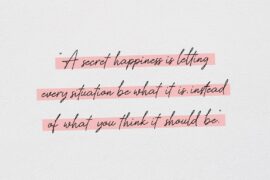 "A secret happiness is letting
every situation be what it is instead
of what you think it should be."